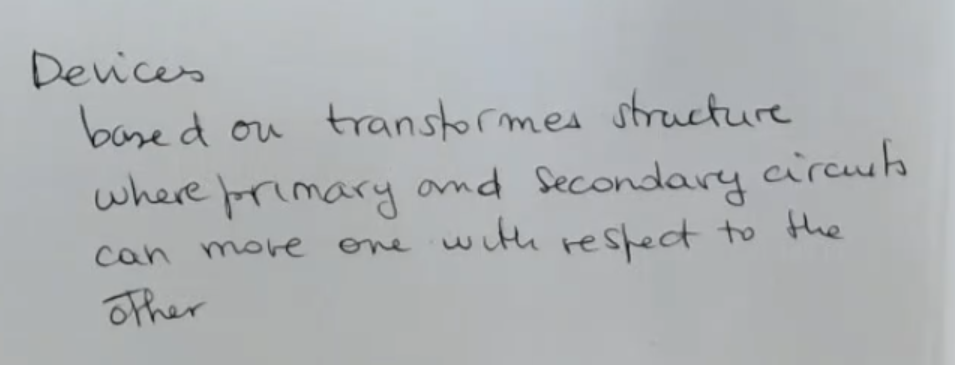 Devices
based on transformer structure
where primary and secondary circuits
can move one with respect to the
other